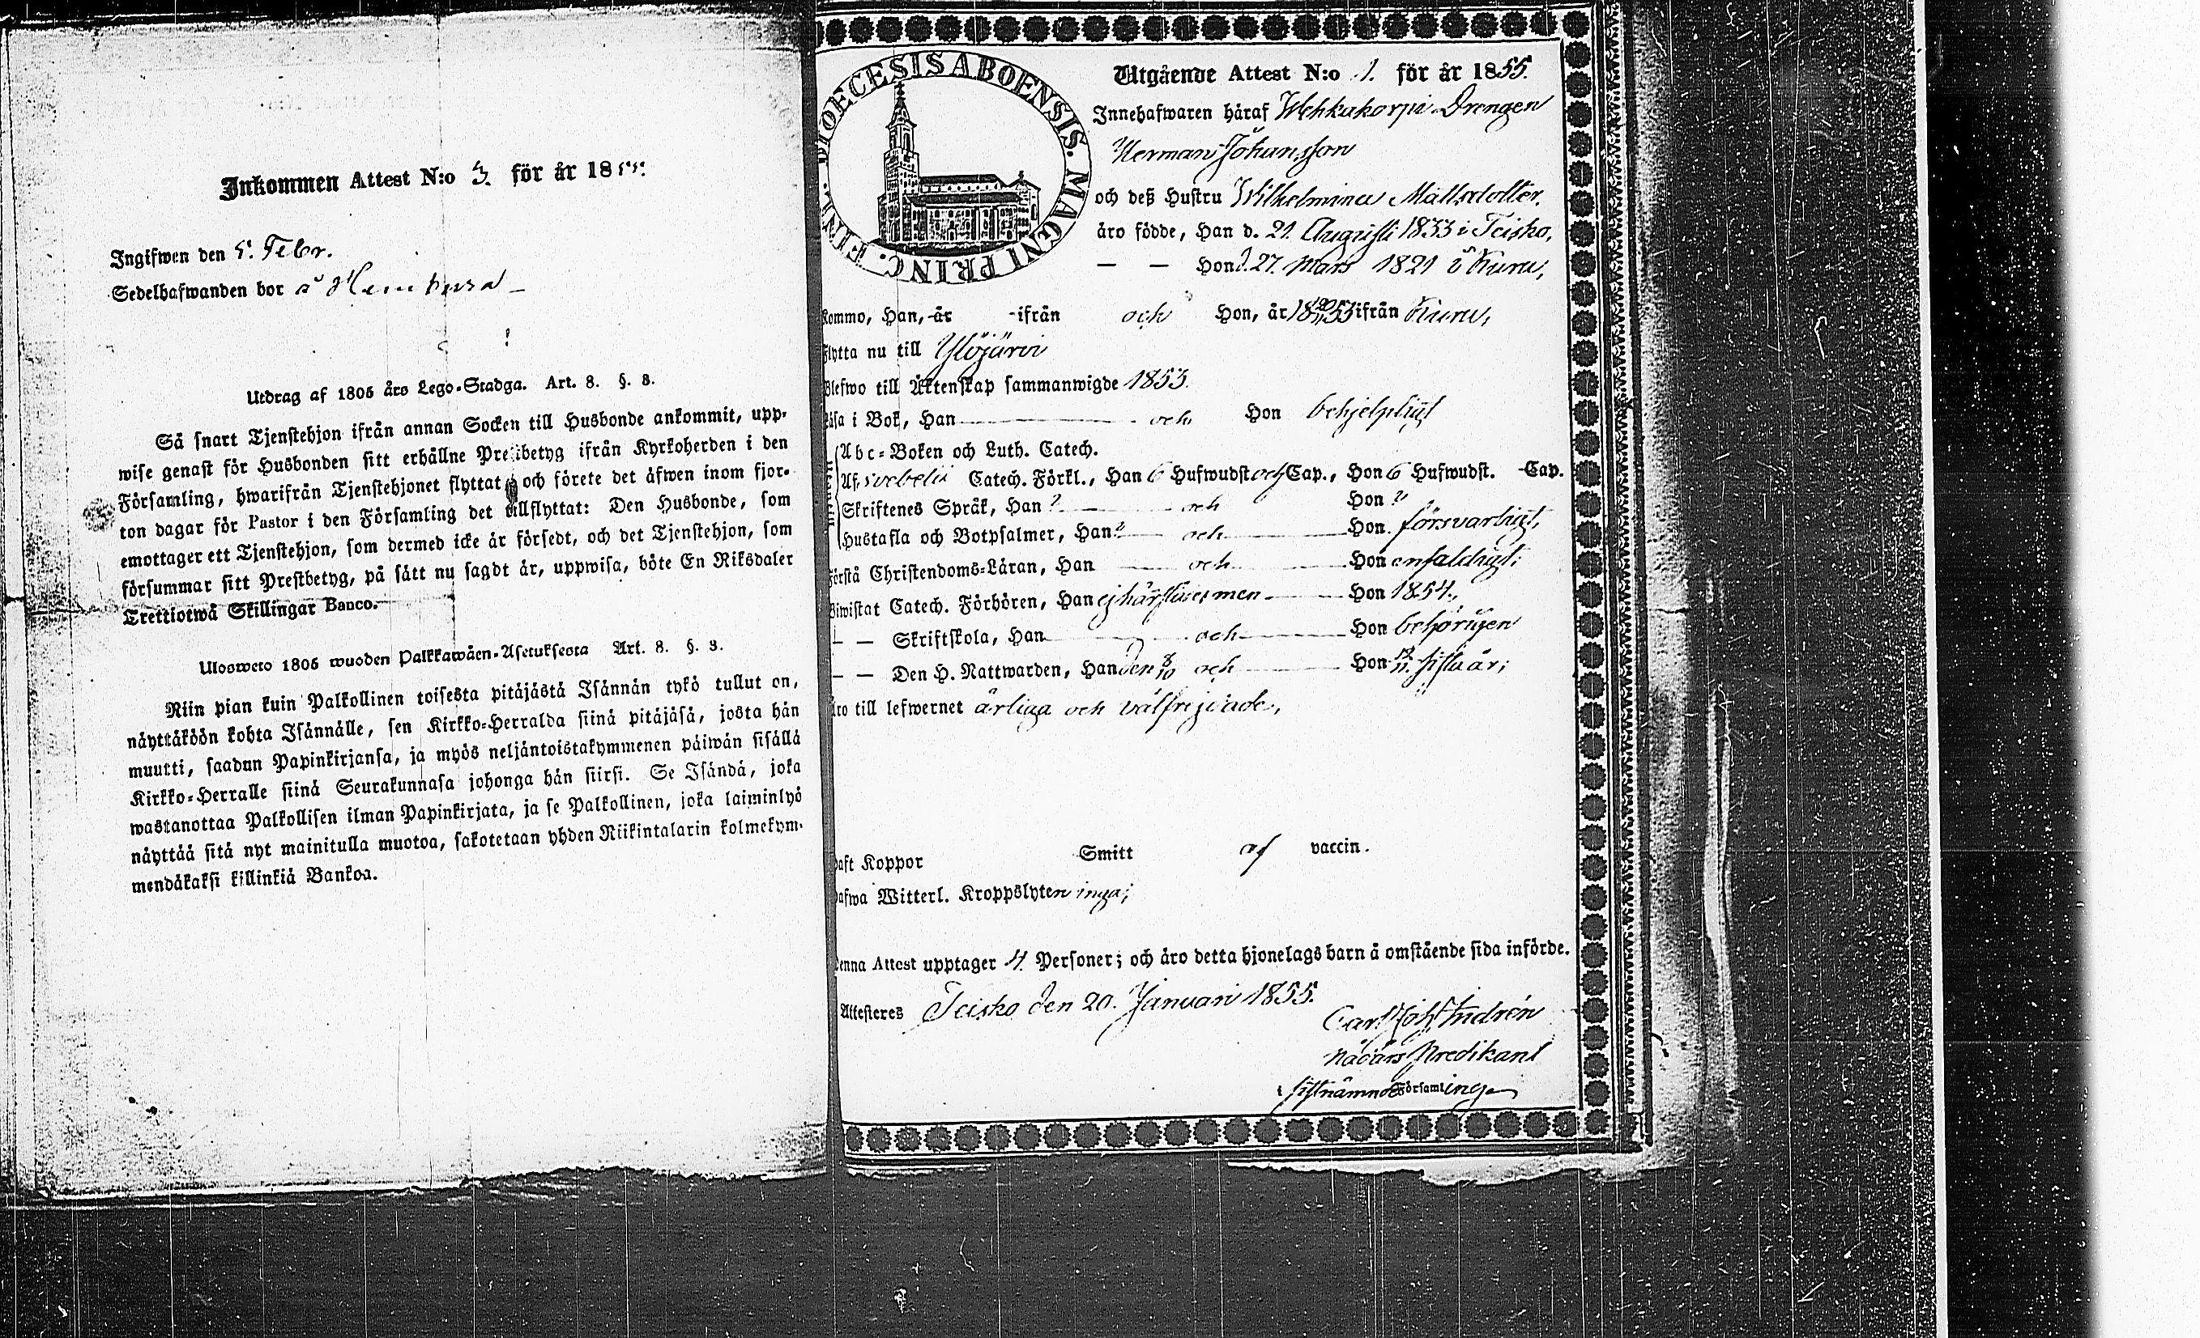 Inkommen Attest N:o 3. för år 1855.
Ingifwen den 5. Febr.
Sedelhafwanden bor å
Utdrag af 1805 års Lego-Stadga. Art. 8. §. 8.
Så snart Tjenstehjon ifrån annan Socken till Husbonde ankommit, upp-
wise genast för Husbonden sitt erhållne Prestbetyg ifrån Kyrkoherden i den
Församling, hwarifrån Tjenstehjonet flyttat, och förete det äfwen inom fjor-
ton dagar för Pastor i den Församling det tillflyttat: Den Husbonde, som
emottager ett Tjenstehjon, som dermed icke är försedt, och det Tjenstehjon, som
försummar sitt Prestbetyg, på sätt nu sagdt är, uppwisa, böte En Riksdaler
Trettiotwå Skillingar Banco.
Uloswete 1805 wuoden Palkkawäen-Asetuksesta Art. 8. §. 8.
Niin pian kuin Palkollinen toisesta pitäjästä Isännän tykö tullut on,
näyttäköön kohta Isännälle, sen Kirkko-Herralda siinä pitäjäsä, josta hän
muutti, saadun Papinkirjansa, ja myös neljäntoistakymmenen päiwän sisällä
Kirkko-Herralle siinä Seurakunnasa johonga hän siirsi. Se Isändä, joka
wastanottaa Palkollisen ilman Papinkirjata, ja se Palkollinen, joka laiminlyö
näyttää sitä nyt mainitulla muotoa, sakotetaan yhden Riikintalarin kolmekym-
mendäkaksi killinkiä Bankoa.
DIOECESIS ABOENSIS. MAGNI PRINC. FINL.
Utgående Attest N:o 1. för år 1855.
Innehafwaren häraf Wehkakorpi Drengen
Herman Johansson
och deß Hustru Wilhelmina Mattsdotter,
äro födde, Han d. 21. Augusti 1833 i Teisko,
— — Hon d. 27. Mars 1821 i Kuru,
Kommo, Han, år ifrån och Hon, år 1853 ifrån Kuru,
Flytta nu till Ylöjärvi
Blefwo till Äktenskap sammanwigde 1853.
Läsa i Bok, Han och Hon behjelpligt
Abc-Boken och Luth. Catech.
Af Svebelii Catech. Förkl., Han 6 Hufwudst och Cap., Hon 6 Hufwudst. Cap.
Skriftenes Språk, Han och Hon
Hustafla och Botpsalmer, Han och Hon försvarligt,
Förstå Christendoms-Läran, Han och Hon enfaldigt;
Biwistat Catech. Förhören, Han ej men Hon 1854.,
— — Skriftskola, Han och Hon behörigen
— — Den H. Nattwarden, Han den 8/10 och Hon sista år;
Äro till lefwernet ärliga och välfrejdade,
Haft Koppor Smitt af vaccin.
Hafwa Witterl. Kroppslyten inga;
Denna Attest upptager 4 Personer; och äro detta hjonelags barn å omstående sida införde.
Attesteres Teisko den 20. Januari 1855.
Carl Joh Indrén
nådårs Predikant
i sistnämnde Församling